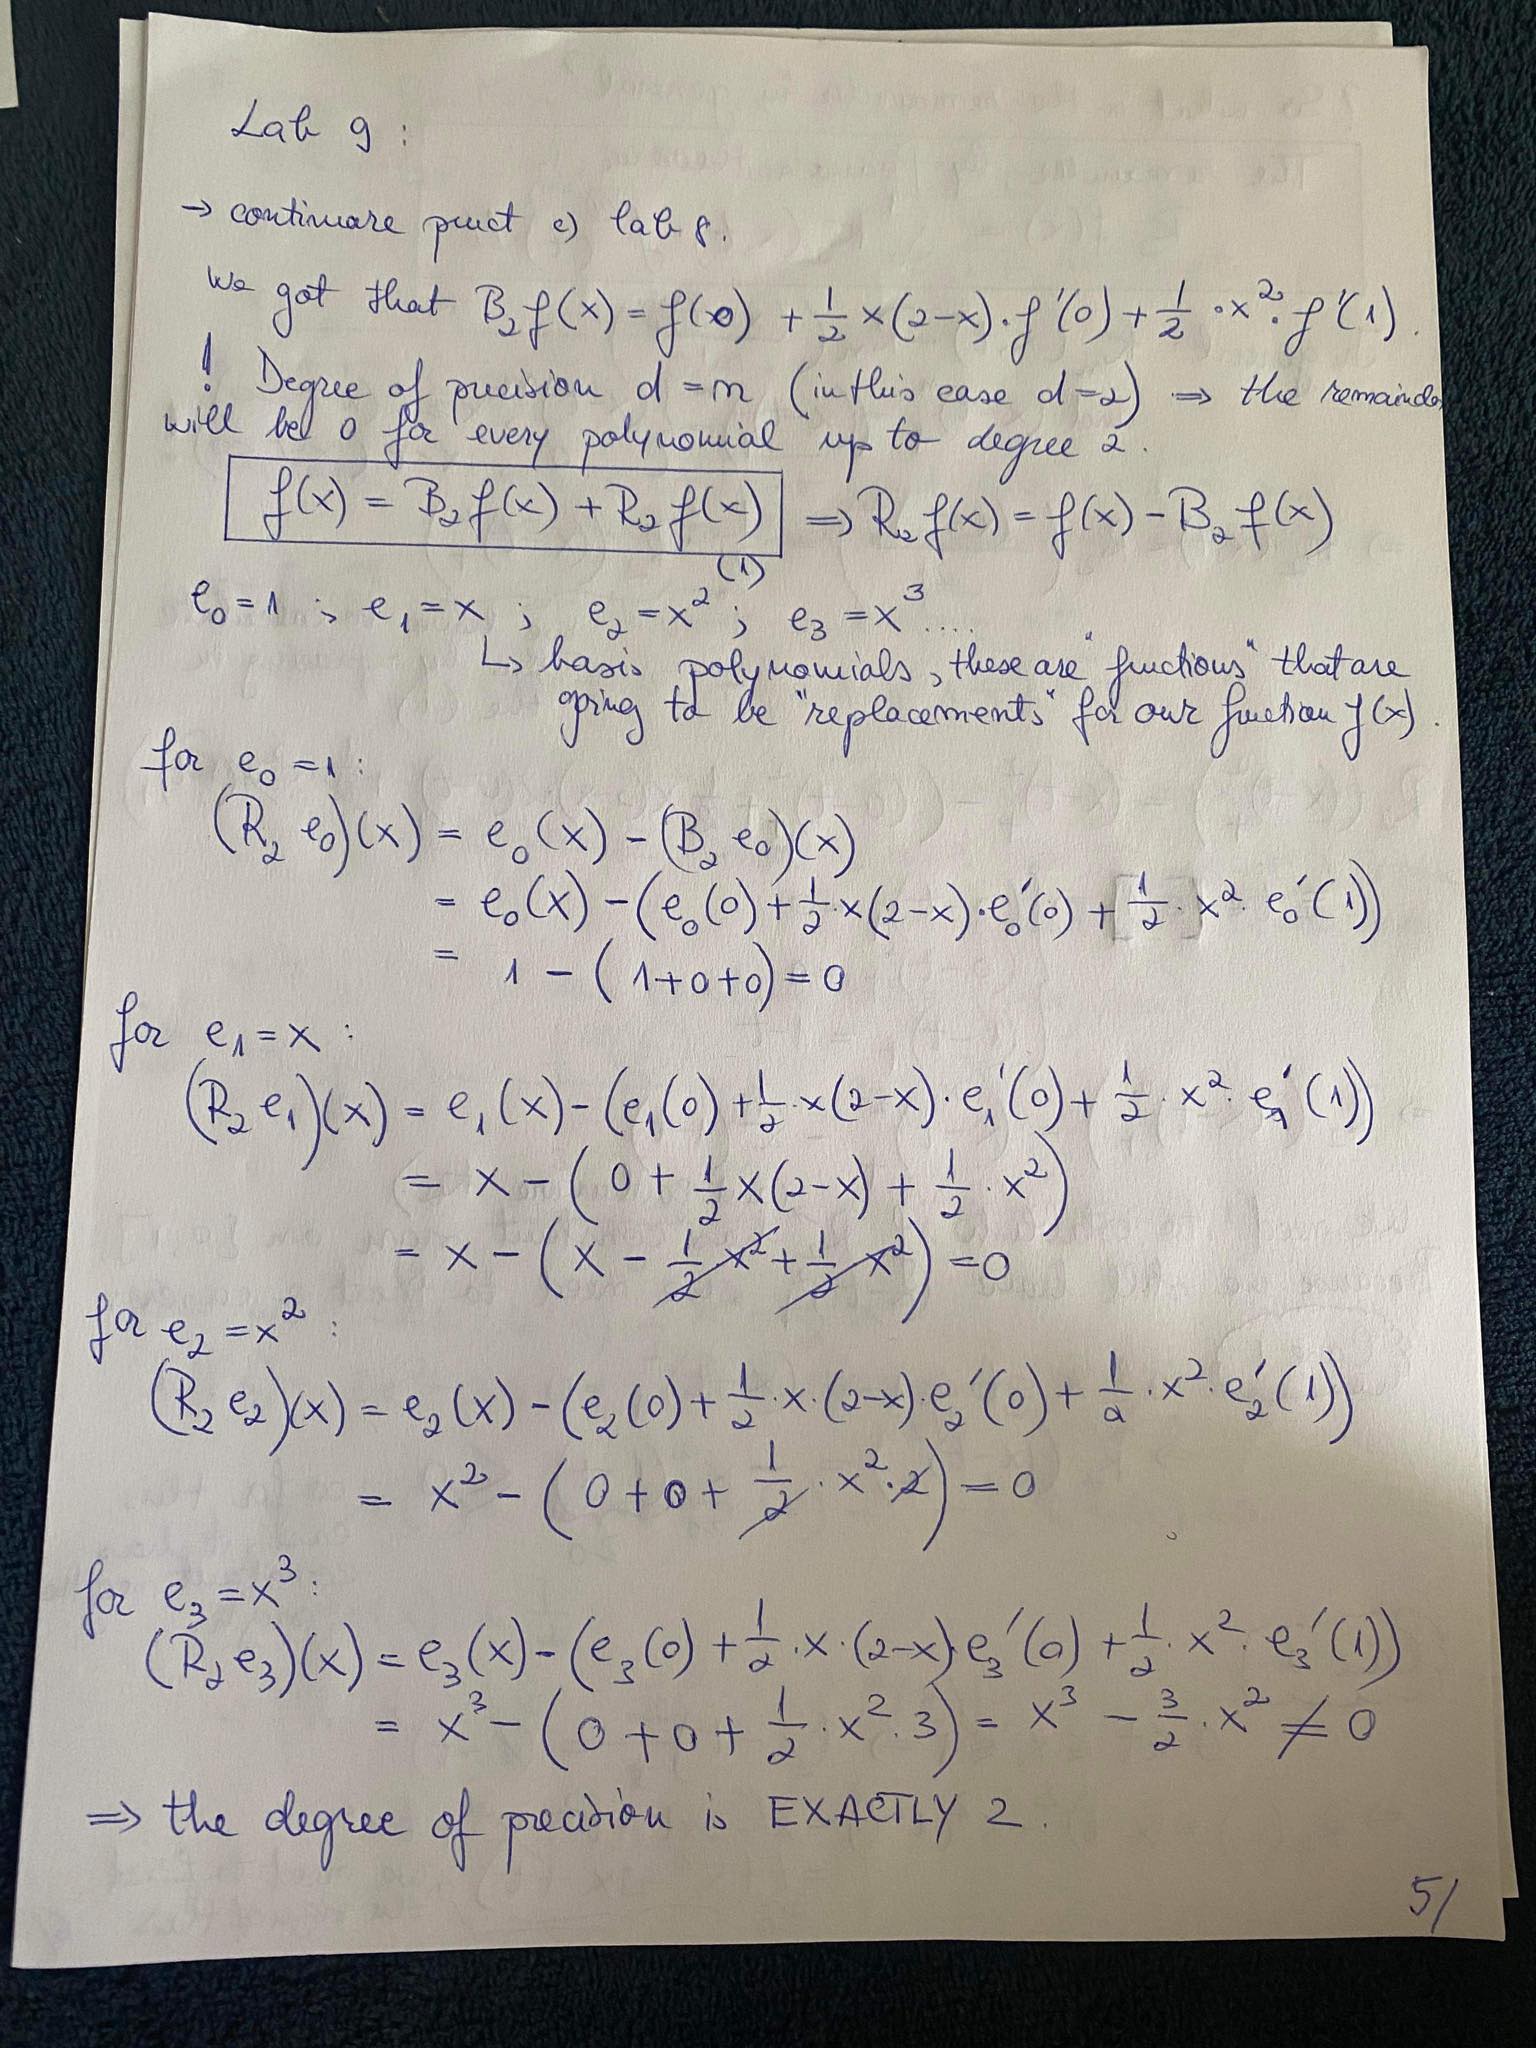 Lab 9 :
→ continuare punct c) lab 8.
We got that B₂f(x) = f(0) + 1/2 x(2-x)·f'(0) + 1/2 ·x²· f'(1).
! Degree of precision d = n (in this case d=2) ⇒ the remainder
will be 0 for every polynomial up to degree 2.
f(x) = B₂f(x) + R₂f(x) ⇒ R₂f(x) = f(x) - B₂f(x)
(1)
e₀=1 ; e₁=x ; e₂=x² ; e₃=x³ ....
↳ basis polynomials, these are "functions" that are
going to be "replacements" for our function f(x).
for e₀=1 :
(R₂ e₀)(x) = e₀(x) - (B₂ e₀)(x)
= e₀(x) - (e₀(0) + 1/2·x(2-x)·e₀'(0) + 1/2· x²· e₀'(1))
= 1 - (1+0+0) = 0
for e₁=x :
(R₂ e₁)(x) = e₁(x) - (e₁(0) + 1/2·x(2-x)·e₁'(0) + 1/2· x²· e₁'(1))
= x - (0 + 1/2 x(2-x) + 1/2 · x²)
= x - (x - 1/2 x² + 1/2 x²) = 0
for e₂=x² :
(R₂ e₂)(x) = e₂(x) - (e₂(0) + 1/2·x·(2-x)·e₂'(0) + 1/2·x²·e₂'(1))
= x² - (0 + 0 + 1/2 · x²·2) = 0
for e₃=x³ :
(R₂e₃)(x) = e₃(x) - (e₃(0) + 1/2·x·(2-x)·e₃'(0) + 1/2· x²· e₃'(1))
= x³ - (0 + 0 + 1/2 · x²·3) = x³ - 3/2 · x² ≠ 0
⇒ the degree of precision is EXACTLY 2.
5/